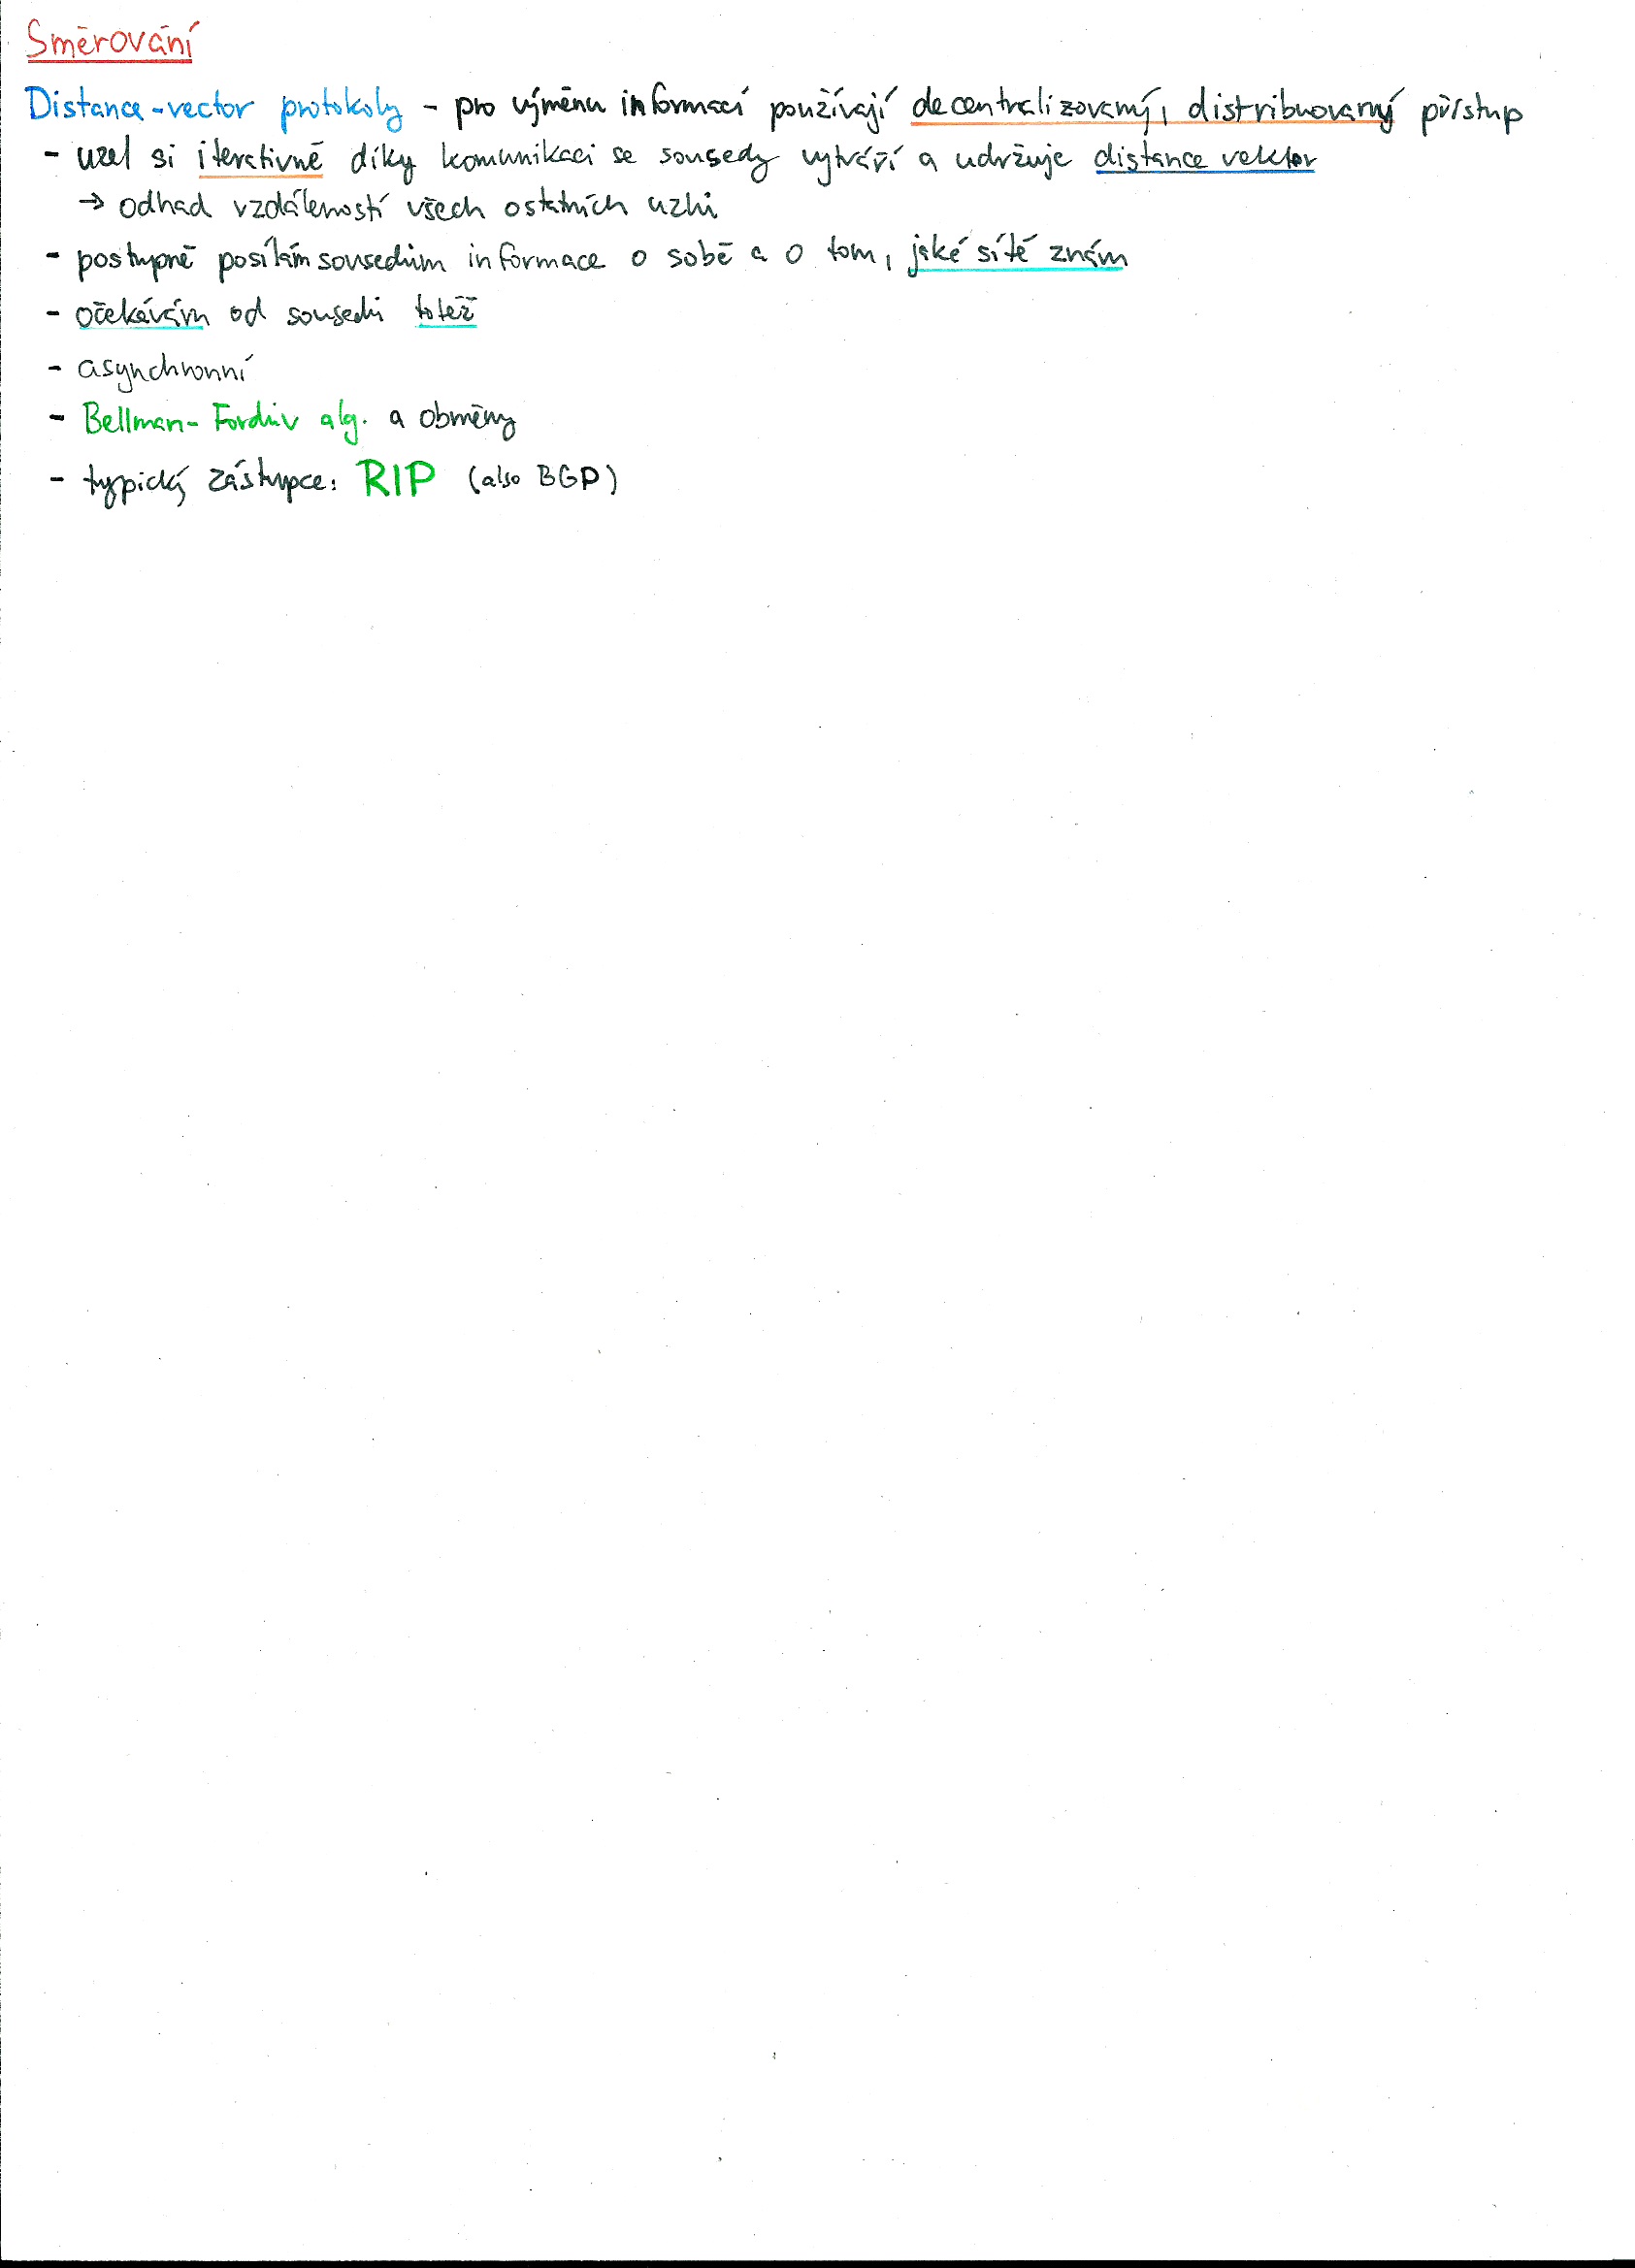 Směrování
Distance-vector protokoly - pro výměnu informací používají decentralizovaný, distribuovaný přístup
- uzel si iterativně díky komunikaci se sousedy vytváří a udržuje distance vektor
→ odhad vzdáleností všech ostatních uzlů
- postupně posílám sousedům informace o sobě a o tom, jaké sítě znám
- očekávám od sousedů totéž
- asynchronní
- Bellman-Fordův alg. a obměny
- typický zástupce: RIP (also BGP)